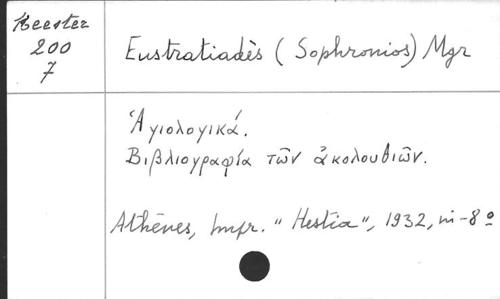 Reester
200
7
Eustratiadès (Sophronios) Mgr
Ἁγιολογικά.
Βιβλιογραφία τῶν ἀκολουθιῶν.
Athènes, Impr. "Hestia", 1932, in-8º